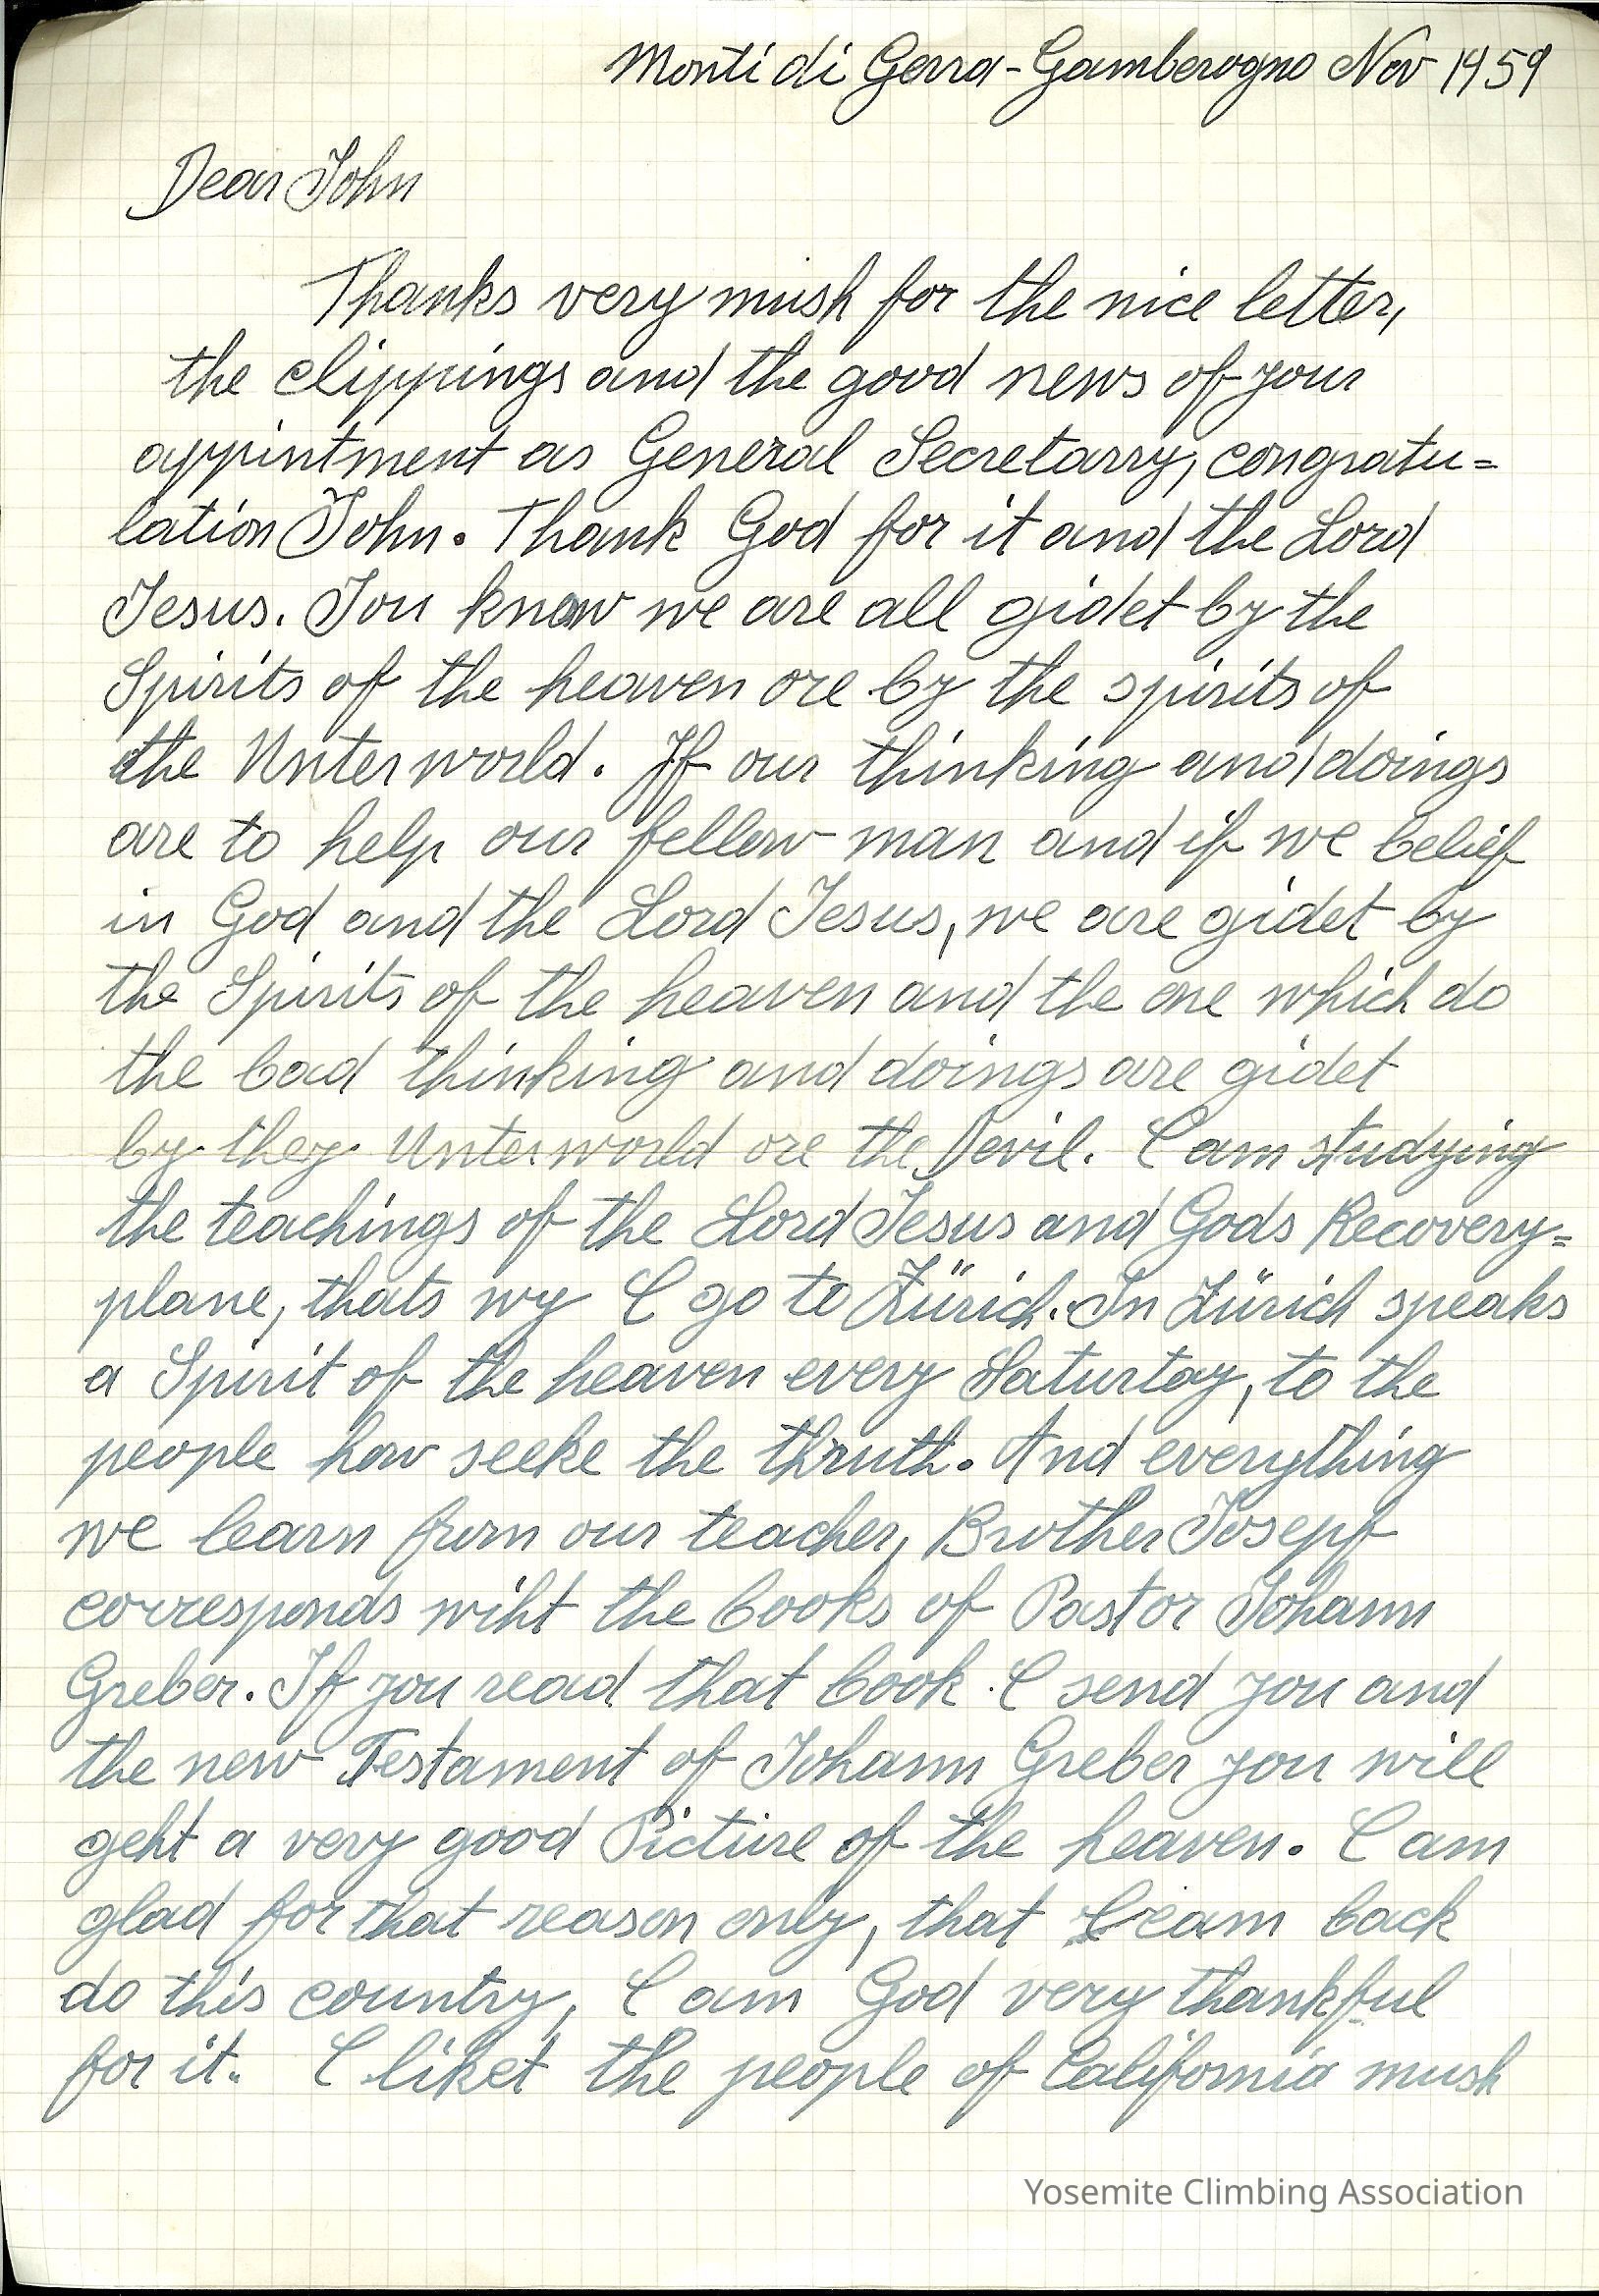 Monti di Gerra-Gamberogno Nov 1959
Dear John
Thanks very mush for the nice letter,
the clippings and the good news of your
appintment as General Secretarry, congratu=
lation John. Thank God for it and the Lord
Jesus. Jou know we are all gidet by the
Spirits of the heaven ore by the spirits of
the Unterworld. If our thinking and doings
are to help our fellow man and if we belief
in God and the Lord Jesus, we are gidet by
the Spirits of the heaven and the one which do
the bad thinking and doings are gidet
by they Unterworld ore the Devil. I am studying
the teachings of the Lord Jesus and Gods Recovery=
plane, thats wy I go to Zürich. In Zürich speaks
a Spirit of the heaven every Saturtay, to the
people how seeke the thruth. And everything
we learn frum our teacher, Brother Josepf
corresponds wiht the books of Pastor Johann
Greber. If you read that book I send you and
the new Testament of Johann Greber you will
geht a very good Picture of the heaven. I am
glad for that reason only, that I cam back
do this country, I am God very thankful
for it. I liket the people of California mush
Yosemite Climbing Association